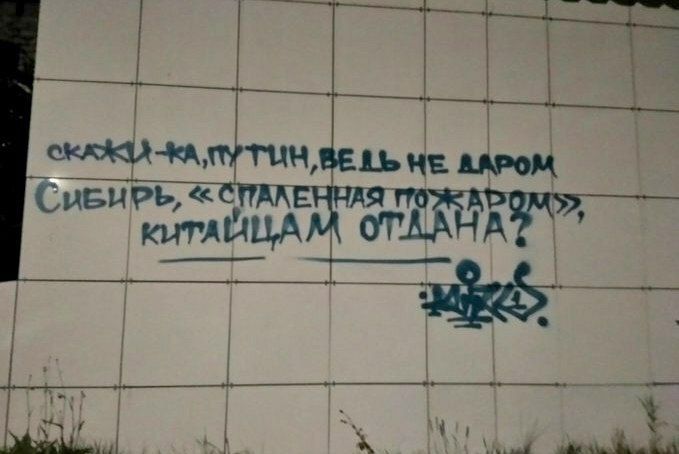 СКАЖИ-КА, ПУТИН, ВЕДЬ НЕ ДАРОМ
СИБИРЬ, «СПАЛЕННАЯ ПОЖАРОМ»,
КИТАЙЦАМ ОТДАНА?